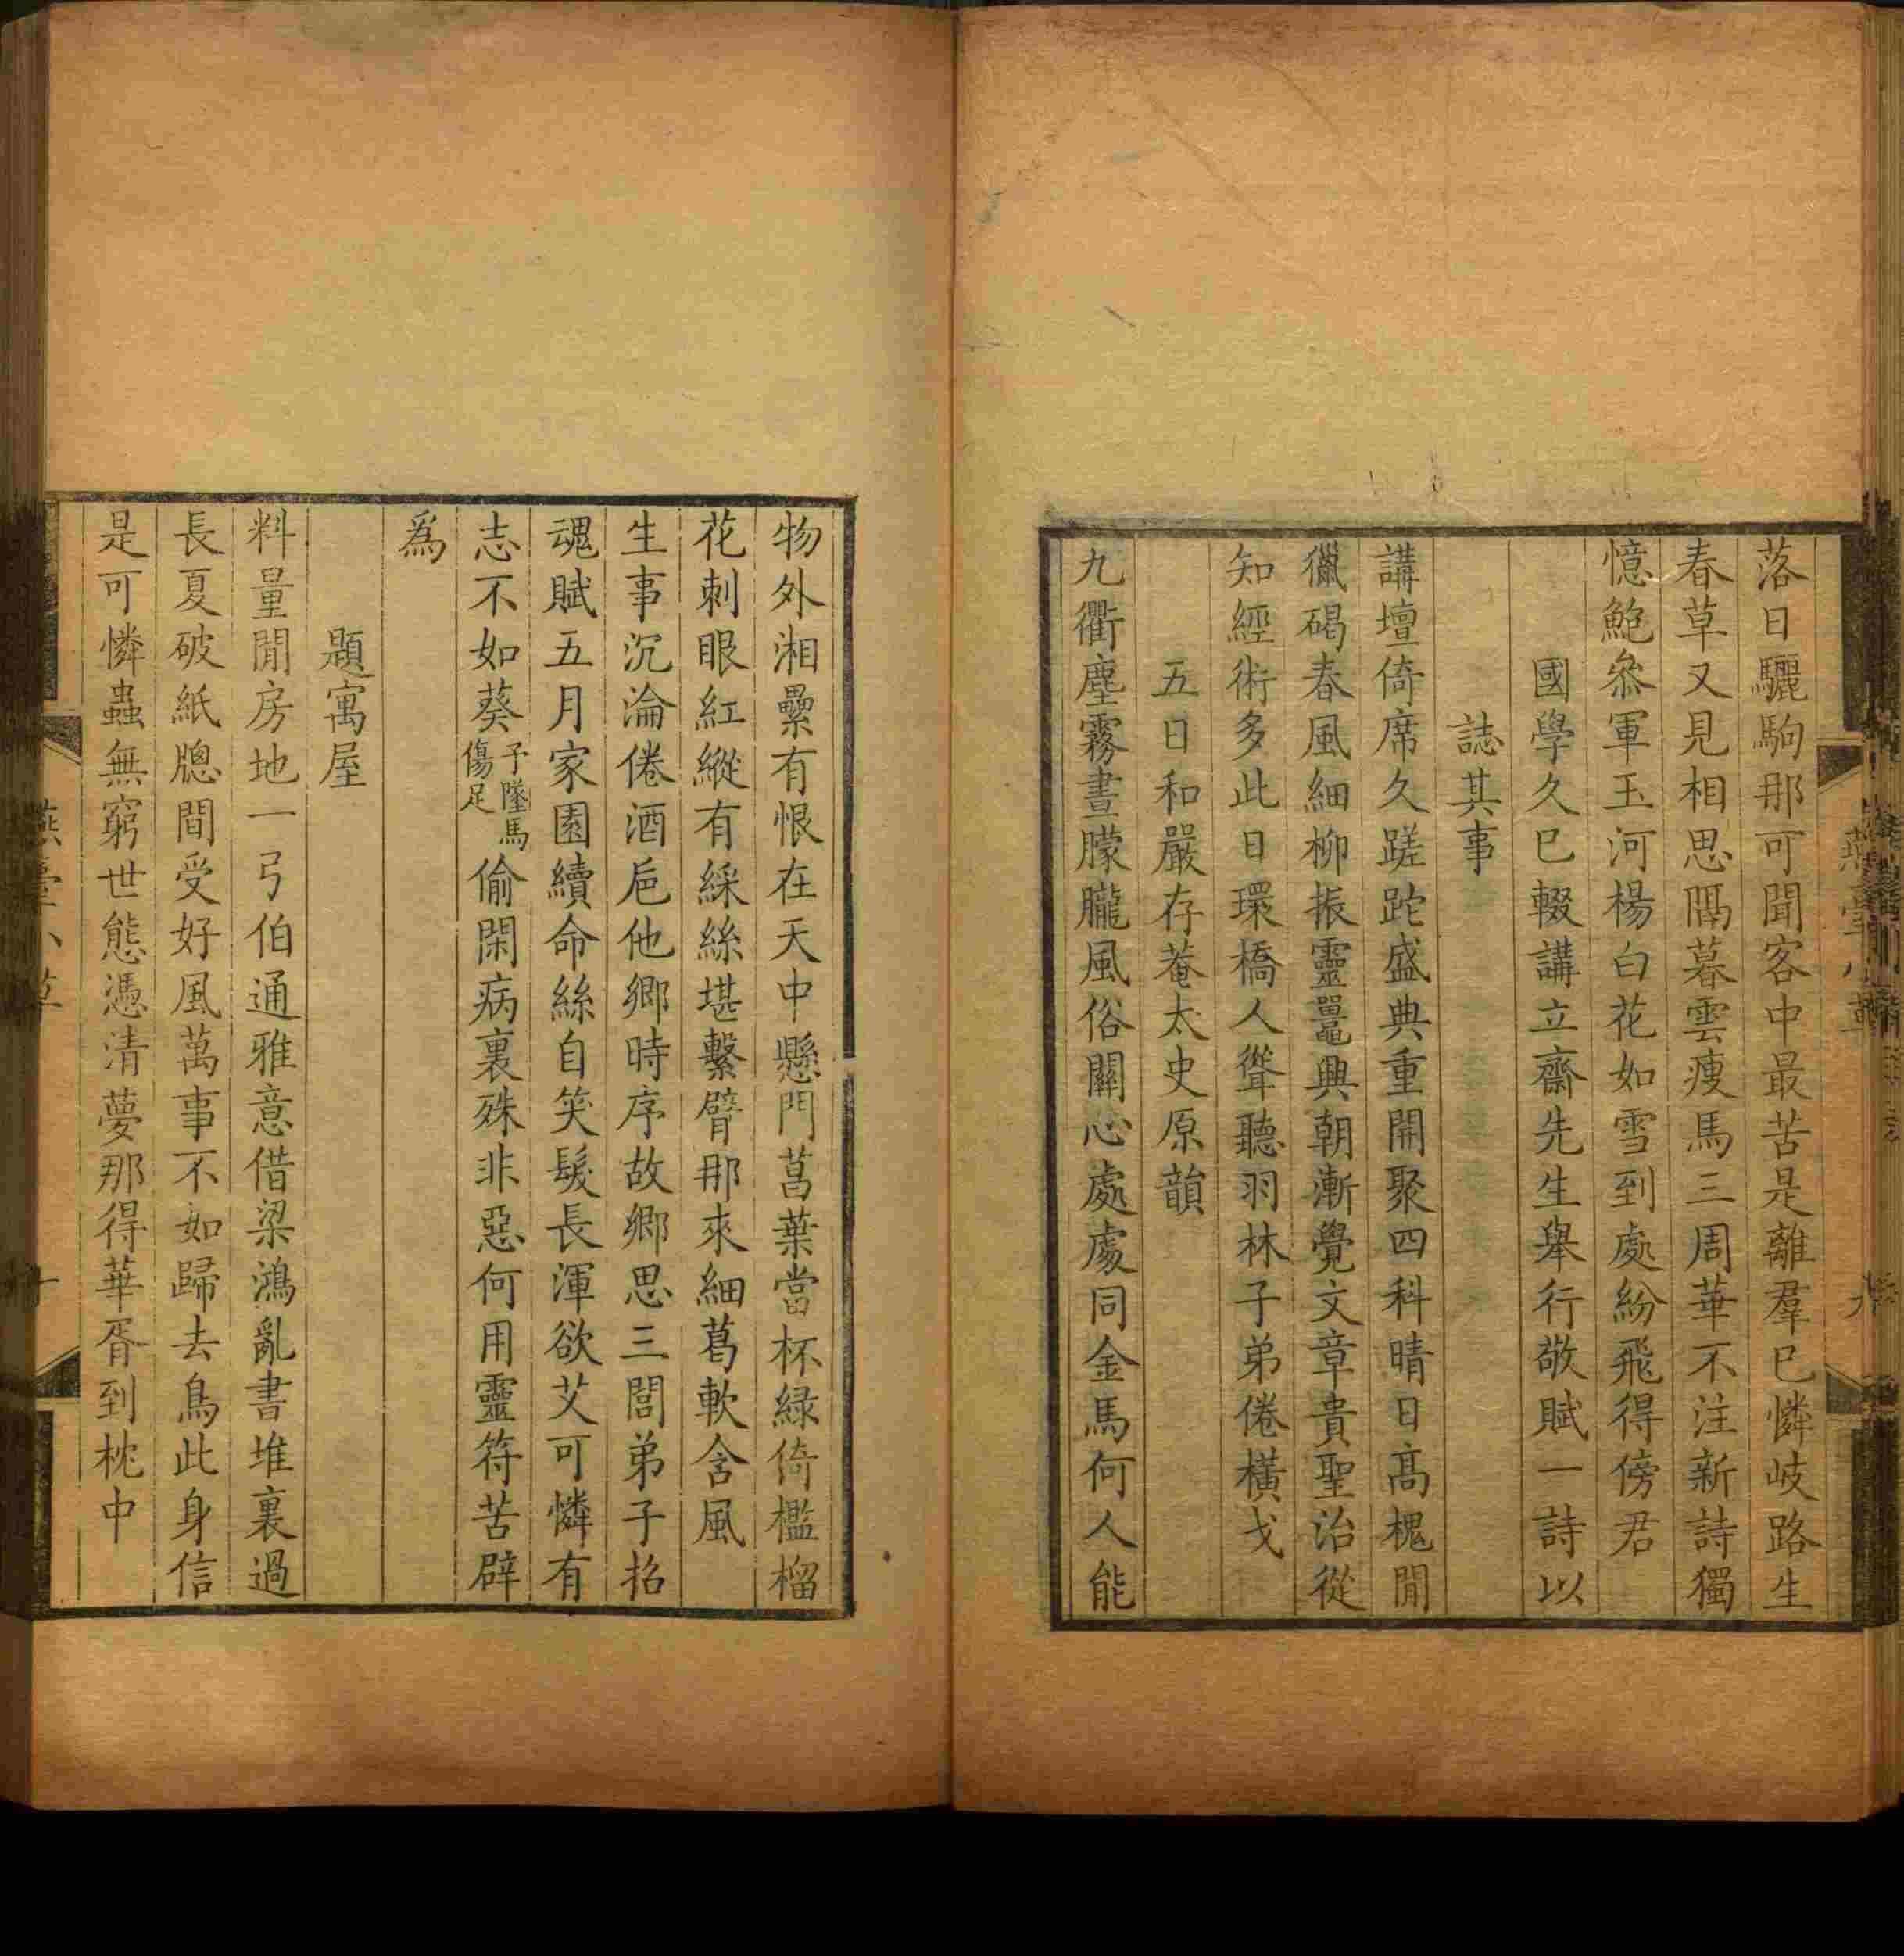 落日驪駒那可聞客中最苦是離羣巳憐岐路生
春草又見相思隔暮雲瘦馬三周華不注新詩獨
憶鮑叅軍玉河楊白花如雪到處紛飛得傍君
國學久巳輟講立齋先生舉行敬賦一詩以
誌其事
講壇倚席久蹉跎盛典重開聚四科晴日高槐閒
獵碣春風細柳振靈鼉興朝漸覺文章貴聖治從
知經術多此日環橋人聳聽羽林子弟倦橫戈
五日和嚴存菴太史原韻
九衢塵霧晝朦朧風俗關心處處同金馬何人能
物外湘纍有恨在天中懸門菖葉當杯緑倚檻榴
花刺眼紅縱有綵絲堪繫臂那來細葛軟含風
生事沉淪倦酒巵他鄉時序故鄉思三閭弟子招
魂賦五月家園續命絲自笑髮長渾欲艾可憐有
志不如葵予墜馬傷足偷閑病裏殊非惡何用靈符苦辟
爲
題寓屋
料量閒房地一弓伯通雅意借梁鴻亂書堆裏過
長夏破紙牕間受好風萬事不如歸去鳥此身信
是可憐蟲無窮世態憑清夢那得華胥到枕中
燕臺小草
十